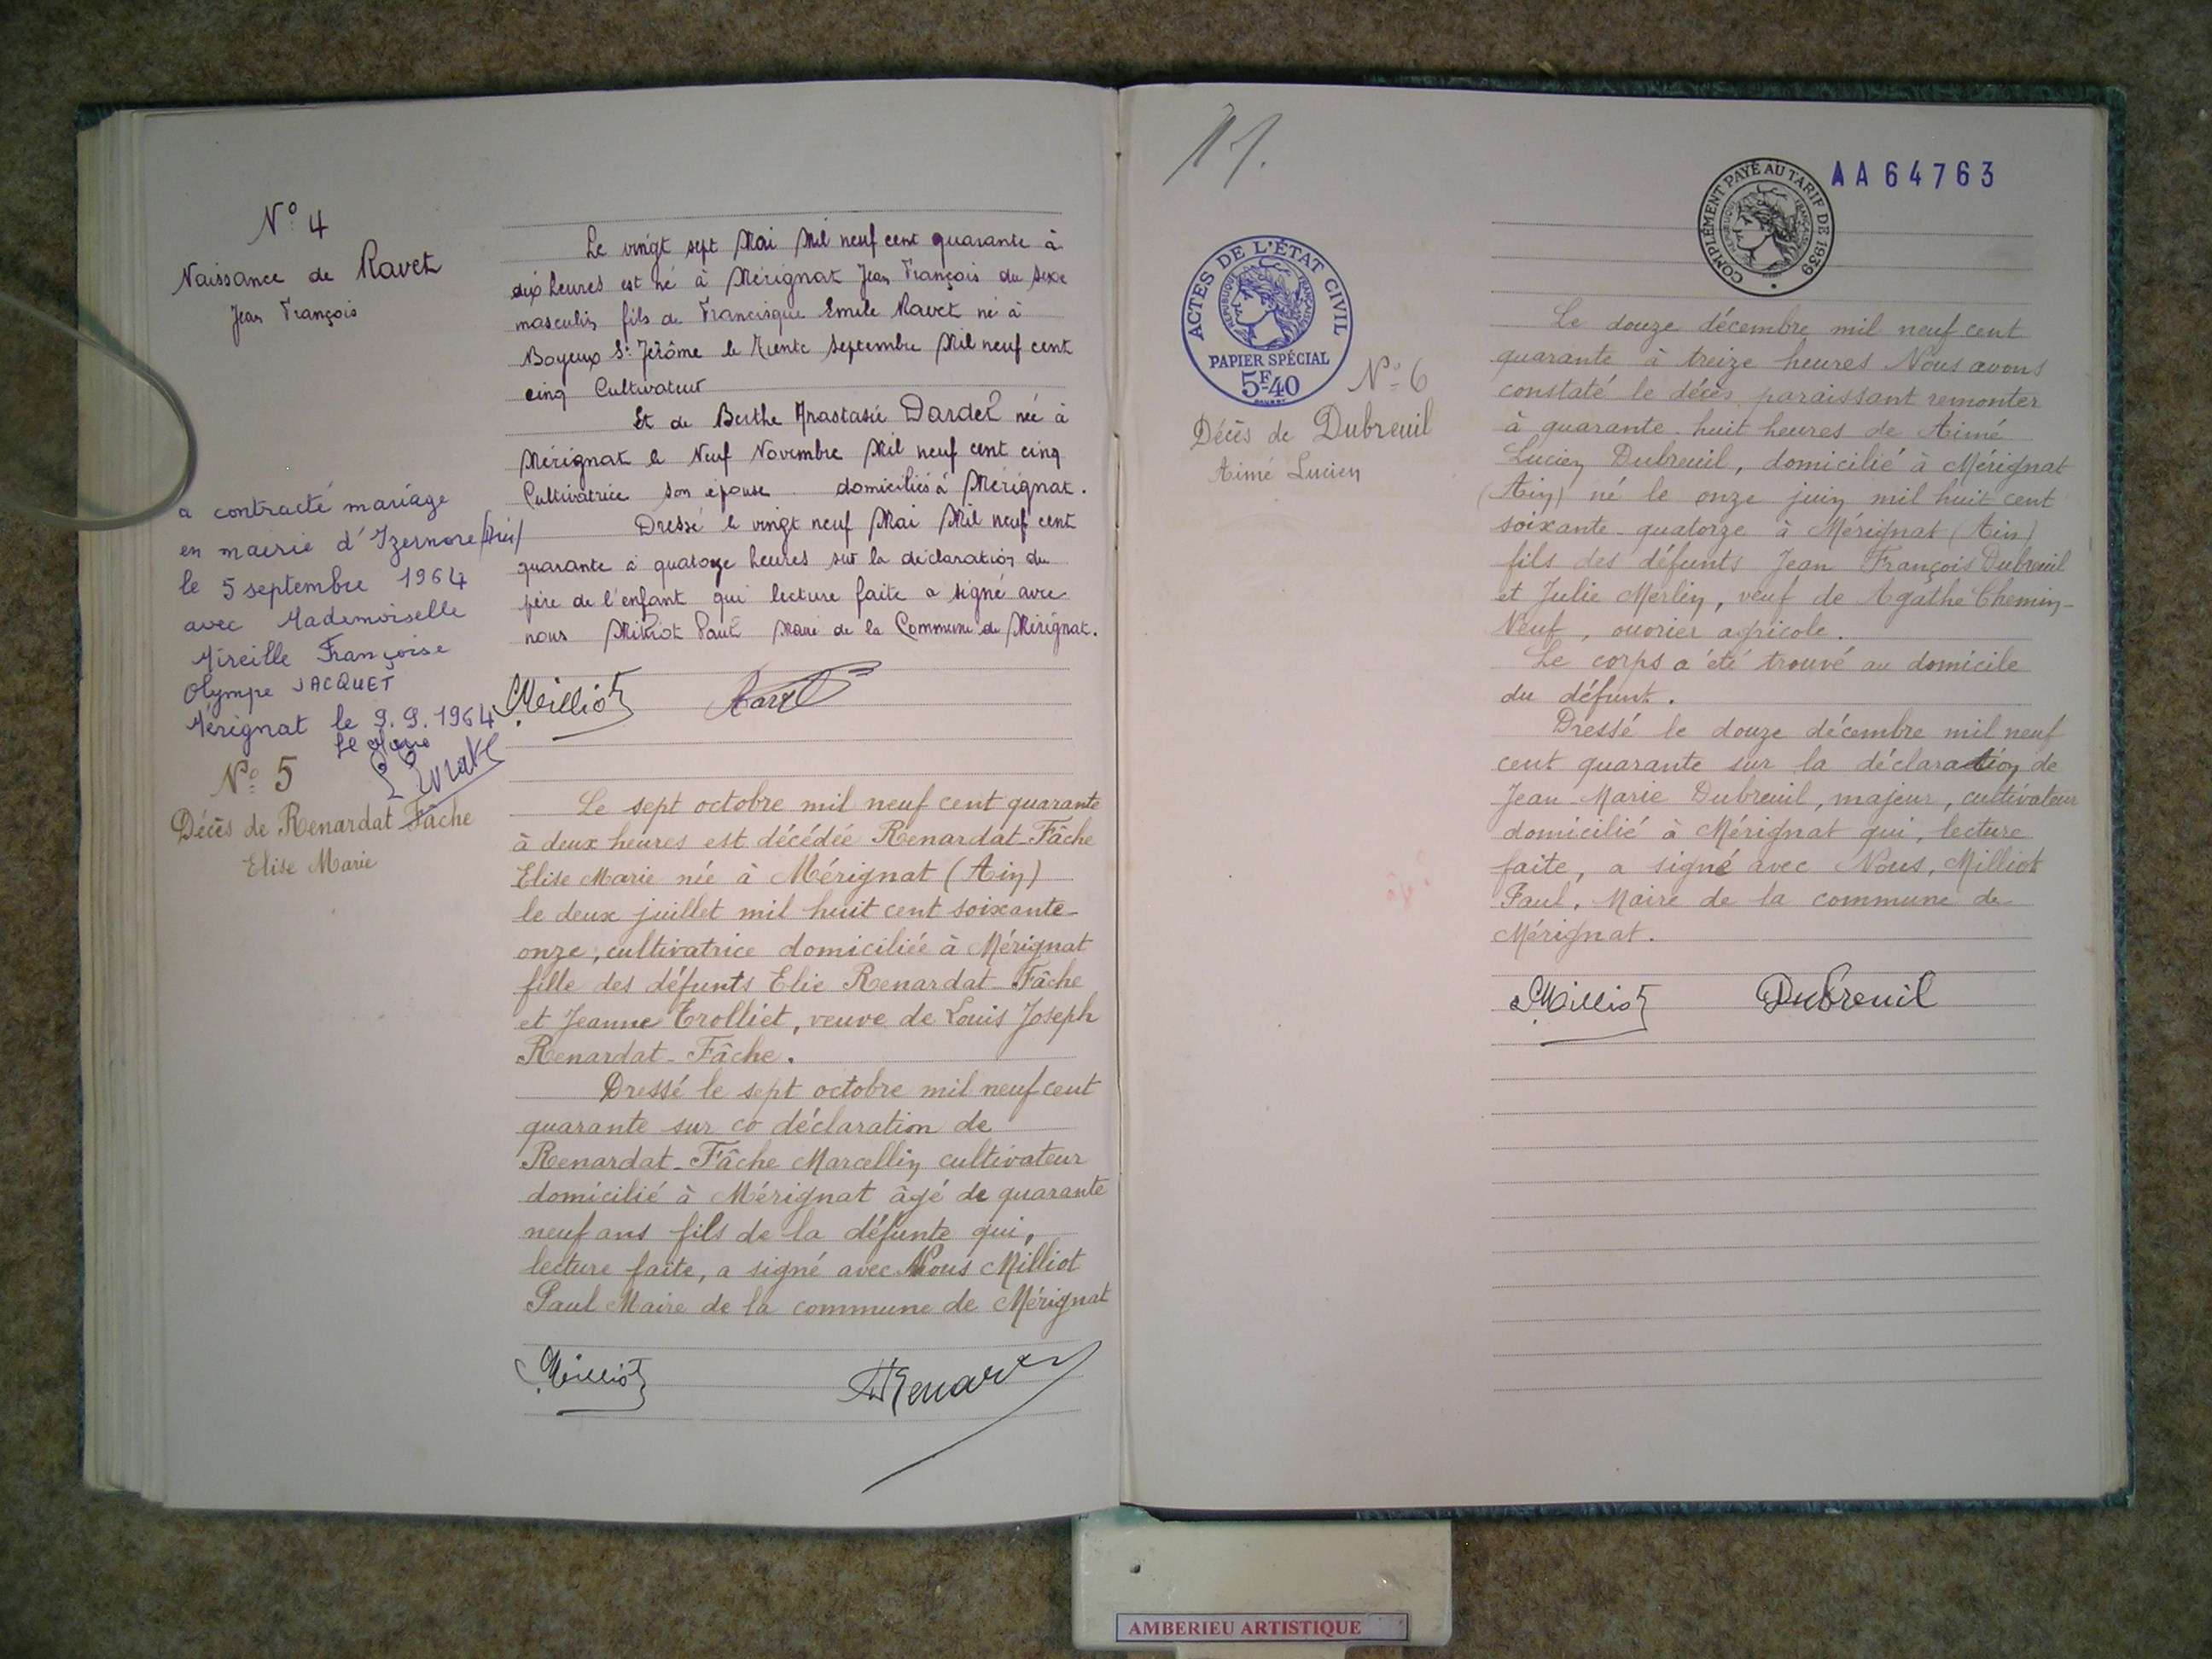 N° 4
Naissance de Ravet
Jean François
Le vingt sept Mai Mil neuf cent quarante à
dix heures est né à Mérignat Jean François du sexe
masculin fils de Francisque Emile Ravet né à
Boyeux St Jérôme le trente Septembre Mil neuf cent
cinq Cultivateur
Et de Berthe Anastasie Dardet née à
Mérignat le Neuf Novembre Mil neuf cent cinq
Cultivatrice son épouse domiciliés à Mérignat.
Dressé le vingt neuf Mai Mil neuf cent
quarante à quatorze heures sur la déclaration du
père de l'enfant qui lecture faite a signé avec
nous Milliot Paul Maire de la Commune de Mérignat.
Milliot
a contracté mariage
en mairie d'Izernore (Ain)
le 5 septembre 1964
avec Mademoiselle
Mireille Françoise
Olympe JACQUET
Mérignat le 9.9.1964
Le Maire
N° 5
Décès de Renardat-Fâche
Elise Marie
Le sept octobre mil neuf cent quarante
à deux heures est décédée Renardat-Fâche
Elise Marie née à Mérignat (Ain)
le deux juillet mil huit cent soixante-
onze, cultivatrice domiciliée à Mérignat
fille des défunts Elie Renardat-Fâche
et Jeanne Trolliet, veuve de Louis Joseph
Renardat-Fâche.
Dressé le sept octobre mil neuf cent
quarante sur co déclaration de
Renardat-Fâche Marcellin cultivateur
domicilié à Mérignat âgé de quarante
neuf ans fils de la défunte qui,
lecture faite, a signé avec Nous Milliot
Paul Maire de la commune de Mérignat
Milliot
AA64763
COMPLÉMENT PAYÉ AU TARIF DE 1939
RÉPUBLIQUE FRANÇAISE
ACTES DE L'ÉTAT CIVIL
RÉPUBLIQUE FRANÇAISE
PAPIER SPÉCIAL
5F40
N° 6
Décès de Dubreuil
Aimé Lucien
Le douze décembre mil neuf cent
quarante à treize heures Nous avons
constaté le décès paraissant remonter
à quarante-huit heures de Aimé
Lucien Dubreuil, domicilié à Mérignat
(Ain) né le onze juin mil huit cent
soixante-quatorze à Mérignat (Ain)
fils des défunts Jean François Dubreuil
et Julie Merlin, veuf de Agathe Chemin-
Neuf, ouvrier agricole.
Le corps a été trouvé au domicile
du défunt.
Dressé le douze décembre mil neuf
cent quarante sur la déclaration de
Jean Marie Dubreuil, majeur, cultivateur
domicilié à Mérignat qui, lecture
faite, a signé avec Nous, Milliot
Paul, Maire de la commune de
Mérignat.
Milliot Dubreuil
AMBERIEU ARTISTIQUE